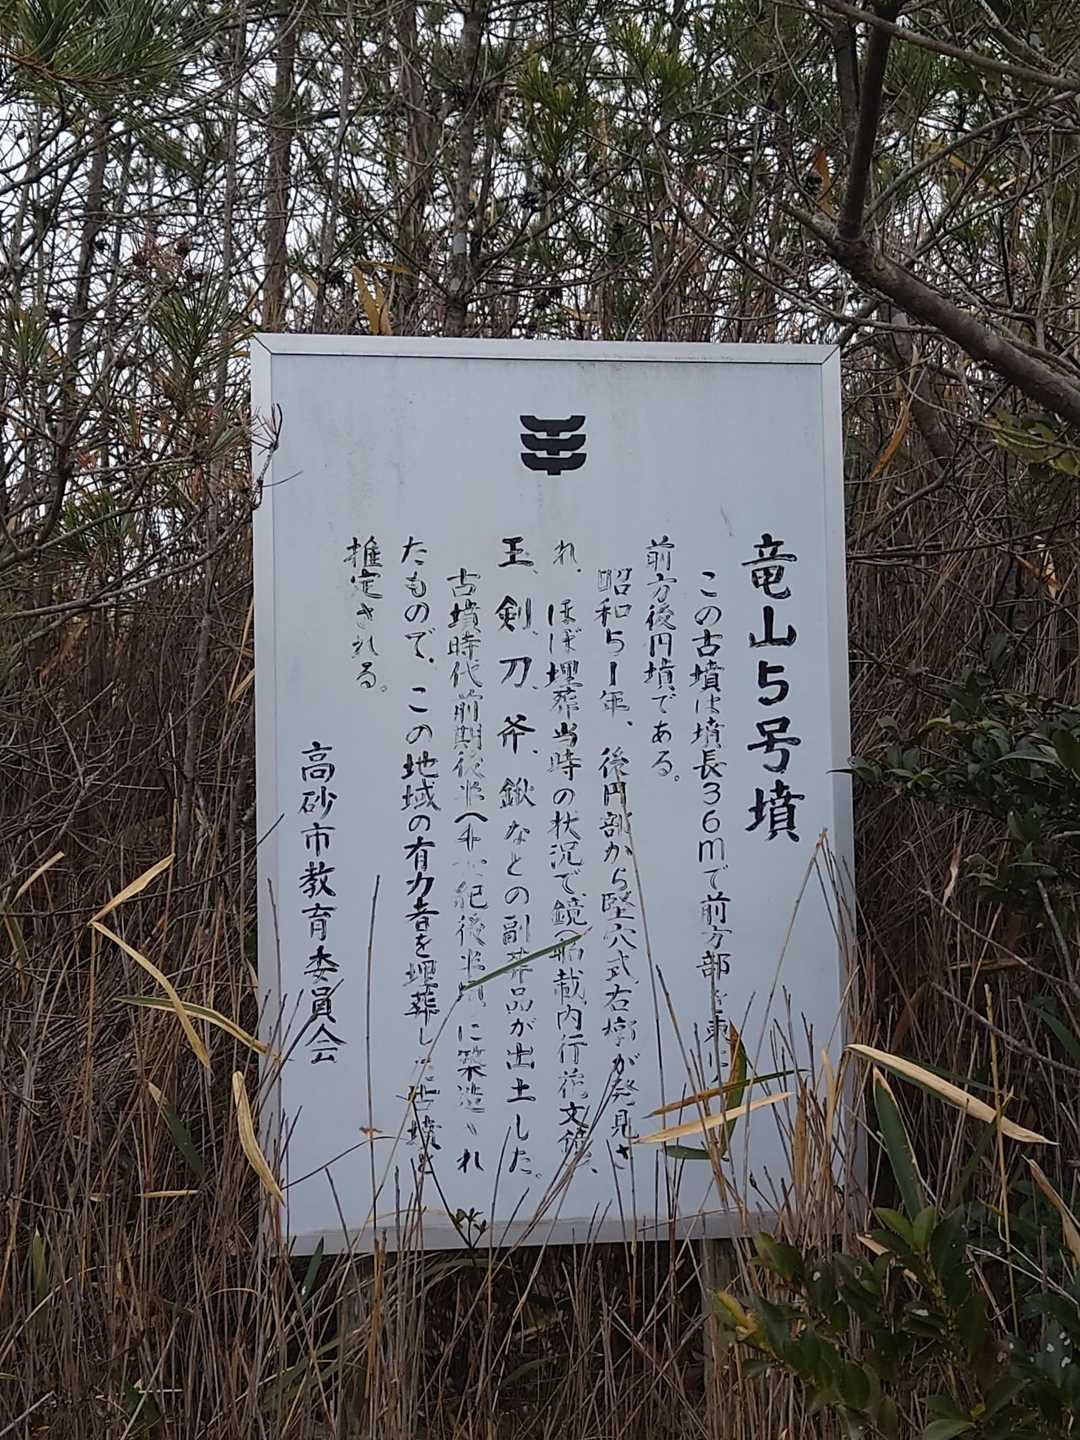 竜山5号墳
この古墳は墳長36mで前方部を東に
前方後円墳である。
昭和51年、後円部から竪穴式石槨が発見さ
れ、ほぼ埋葬当時の状況で、鏡(舶載内行花文鏡)、
玉、剣、刀、斧、鍬などの副葬品が出土した。
古墳時代前期後半(紀後半頃)に築造され
たもので、この地域の有力者を埋葬した古墳と
推定される。
高砂市教育委員会